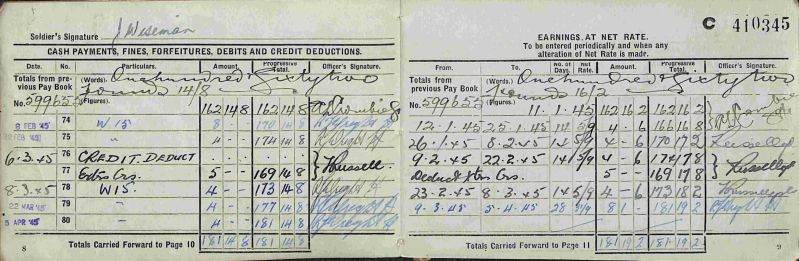 Soldier's Signature J Wiseman
CASH PAYMENTS, FINES, FORFEITURES, DEBITS AND CREDIT DEDUCTIONS.
Date. No. Particulars. Amount. Progressive Total. Officer's Signature.
Totals from previous Pay Book (Words). One hundred & Sixty two
pounds 14/8
No. 599655 (Figures). 162 14 8 162 14 8
8 FEB '45 74 W 15 8 - 170 14 8
22 FEB '45 75 " 4 - 174 14 8
6.3.45 76 CREDIT. DEDUCT
77 Extn Crs. 5 - 169 14 8 Russell.
8.3.45 78 W15. 4 - 173 14 8
22 MAR '45 79 " 4 - 177 14 8
5 APR '45 80 " 4 - 181 14 8
8 Totals Carried Forward to Page 10 181 14 8 181 14 8
C 410345
EARNINGS, AT NET RATE.
To be entered periodically and when any
alteration of Net Rate is made.
From. To. No. of Days. Net Rate. Amount. Progressive Total. Officer's Signature.
Totals from previous Pay Book (Words). One hundred & Sixty two
pounds 16/2
No. 599655 (Figures). 11.1.45 162 16 2 162 16 2
12.1.45 25.1.45 14 5/9 4 - 6 166 16 8
26.1.45 8.2.45 14 5/9 4 - 6 170 17 2
9.2.45 22.2.45 14 5/9 4 - 6 174 17 8
Deduct Extn Crs. 5 - 169 17 8
23.2.45 8.3.45 14 5/9 4 - 6 173 18 2
9.3.45 5.4.45 28 5/9 8 1 - 181 19 2
Totals Carried Forward to Page 11 181 19 2 181 19 2 9